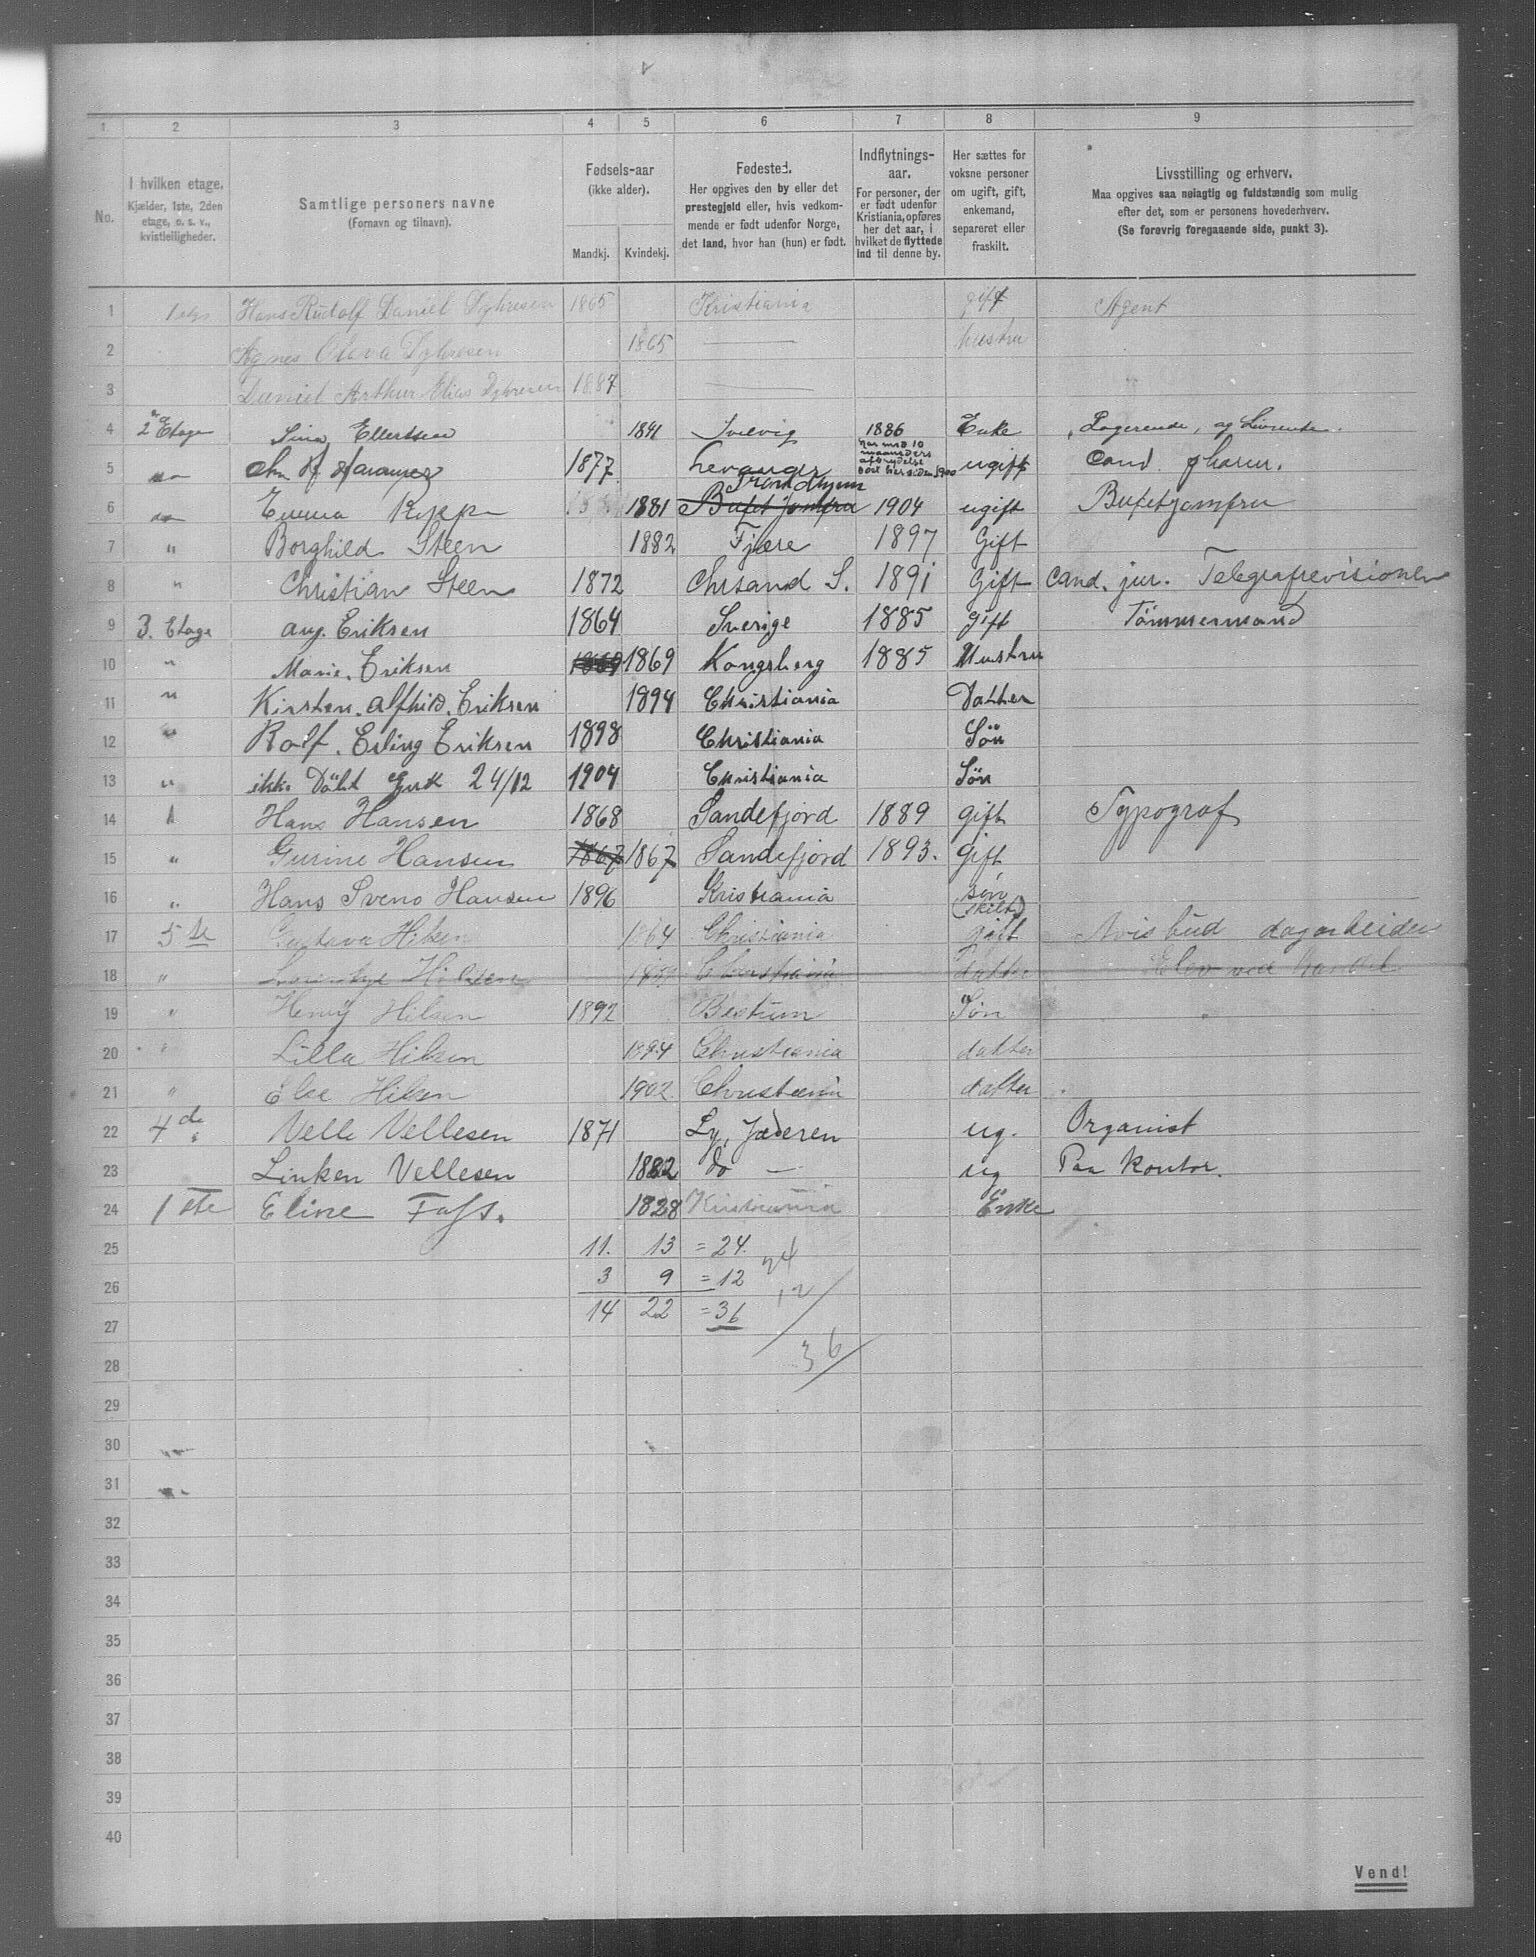 1 2 3 4 5 6 7 8 9
No.
I hvilken etage. Kjælder, 1ste, 2den etage, o. s. v., kvistleiligheder.
Samtlige personers navne (Fornavn og tilnavn).
Fødsels-aar (ikke alder).
Mandkj. Kvindekj.
Fødested. Her opgives den by eller det prestegjeld eller, hvis vedkommende er født udenfor Norge, det land, hvor han (hun) er født.
Indflytnings-aar. For personer, der er født udenfor Kristiania, opføres her det aar, i hvilket de flyttede ind til denne by.
Her sættes for voksne personer om ugift, gift, enkemand, separeret eller fraskilt.
Livsstilling og erhverv. Maa opgives saa nøiagtig og fuldstændig som mulig efter det, som er personens hovederhverv. (Se forøvrig foregaaende side, punkt 3).
1 Hans Rudolf Daniel Dyhresen 1865 Kristiania gift Agent
2 Agnes Olava Dyhresen 1865 — hustru
3 Daniel Arthur Elias Dyhresen 1887 —
4 2 Etage Sina Ellertsen 1841 1886 Enke Logerende, og Livrente.
5 1877 Levanger har med 10 maaneders afbrydelse boet her siden 1900 ugift Cand. pharm.
6 Emma 1881 Trondhjem Bufetjomfru 1904 ugift Bufetjomfru
7 " Borghild Steen 1882 Fjære 1897 Gift
8 " Christian Steen 1872 Chrsand S. 1891 Gift Cand. jur. Telegrafrevisionen
9 3. Etage Aug. Eriksen 1864 Sverige 1885 Gift Tömmermand
10 " Marie. Eriksen 1869 1869 Kongsberg 1885 Hustru
11 " Kirsten. Alfhild. Eriksen 1894 Christiania Datter
12 " Rolf. Erling Eriksen 1898 Christiania Sön
13 " ikke Döbt 24/12 1904 Christiania Sön
14 Hans Hansen 1868 Sandefjord 1889 gift Typograf
15 " Gurine Hansen 1867 1867 Sandefjord 1893. gift
16 " Hans Sveno Hansen 1896 Kristiania søn
17 5te Gustava Hilsen 1864 Christiania (skilt) gift Avisbud dagarbeider
18 " Christiania datter Elev ved handel
19 " Henry Hilsen 1892 Bestum Søn
20 " Lilla Hilsen 1894 Christiania datter
21 " Else Hilsen 1902. Christiania datter
22 4de Velle Vellesen 1871 Ly, Jæderen ug. Organist
23 Linken Vellesen 1882 do — ug Paa Kontor.
24 1ste Eline 1828 Kristiania Enke
25 11. 13 = 24. 24
26 3 9 = 12 12
27 14 22 = 36
28 36
29
30
31
32
33
34
35
36
37
38
39
40
Vend!